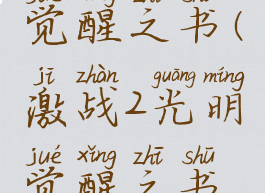 觉醒之书(
jī zhàn guāng míng
激战2光明
jué xǐng zhī shū
觉醒之书